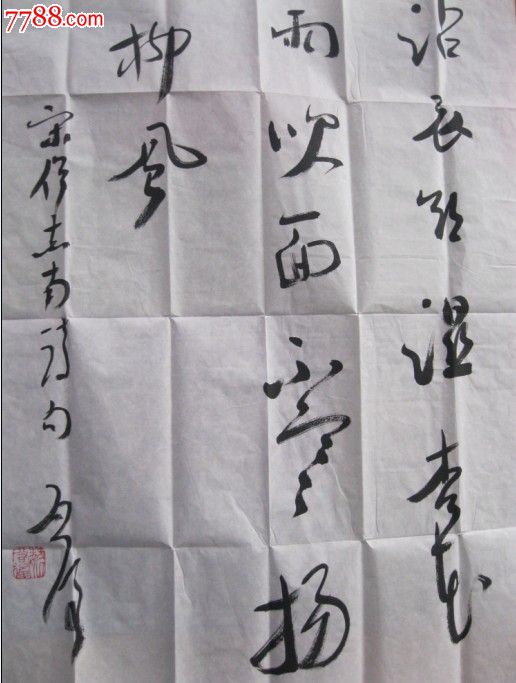 7788.com
沾衣欲湿杏花
雨吹面不寒扬
柳风
宋僧志南诗句